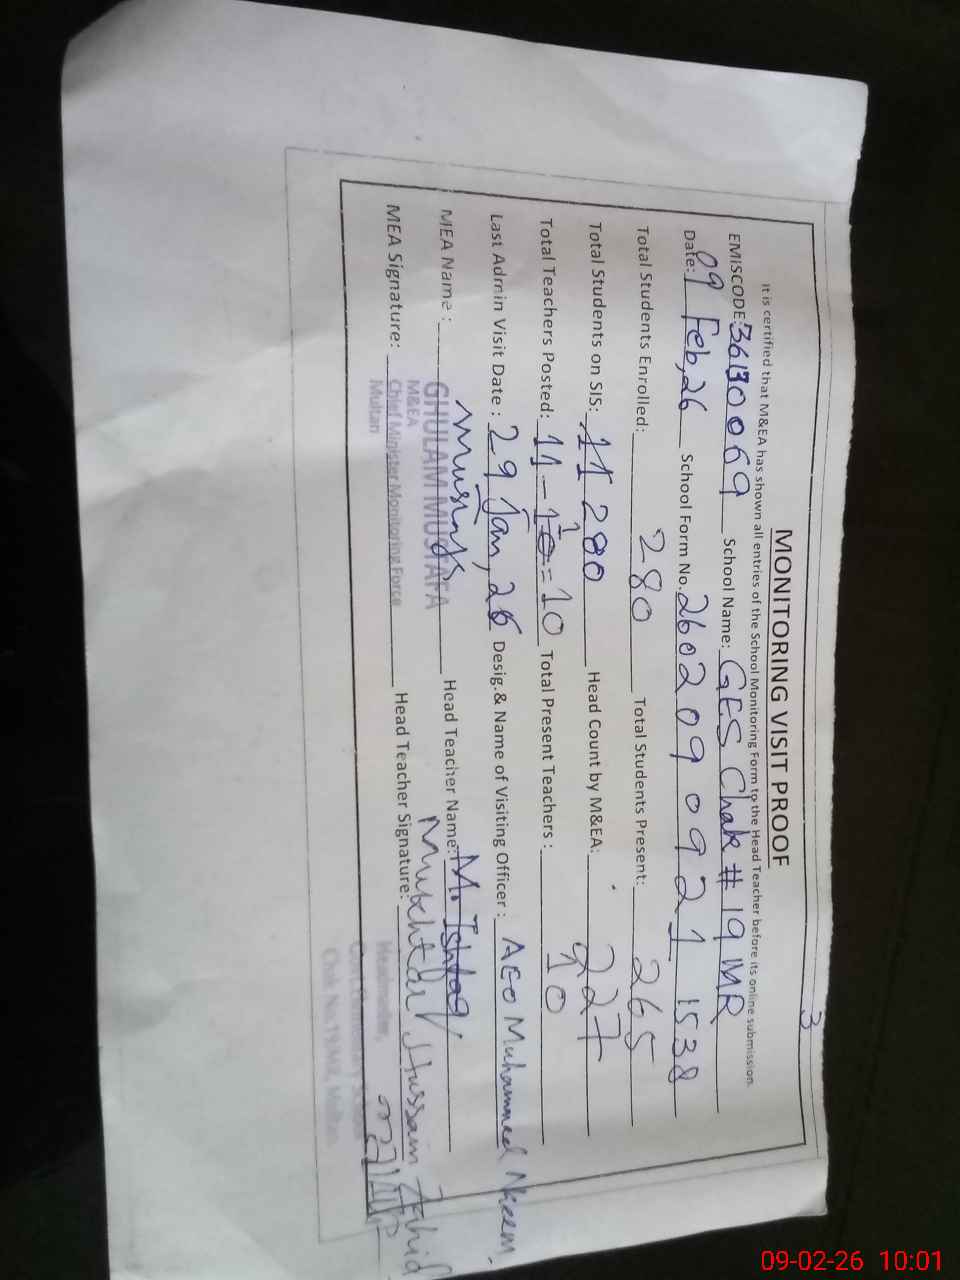 3
MONITORING VISIT PROOF
It is certified that M&EA has shown all entries of the School Monitoring Form to the Head Teacher before its online submission.
EMISCODE: 36130069 School Name: GES Chak # 19 MR
Date: 09 Feb, 26 School Form No. 2602 09 09 21 1538
Total Students Enrolled: 280 Total Students Present: 265
Total Students on SIS: 11 280 Head Count by M&EA: 227
Total Teachers Posted: 11 - 1 = 10 Total Present Teachers: 10
Last Admin Visit Date: 29 Jan, 26 Desig.& Name of Visiting Officer: AEO Muhammed Nkeem
MEA Name: GHULAM MUSTAFA Head Teacher Name: M. Ishfaq
M&EA
Mukhtar Hussain Zahid
MEA Signature: Chief Minister Monitoring Force Head Teacher Signature:
Multan
Headmaster,
Govt Elementary School
Chak No.19 MR, Multan
09-02-26 10:01